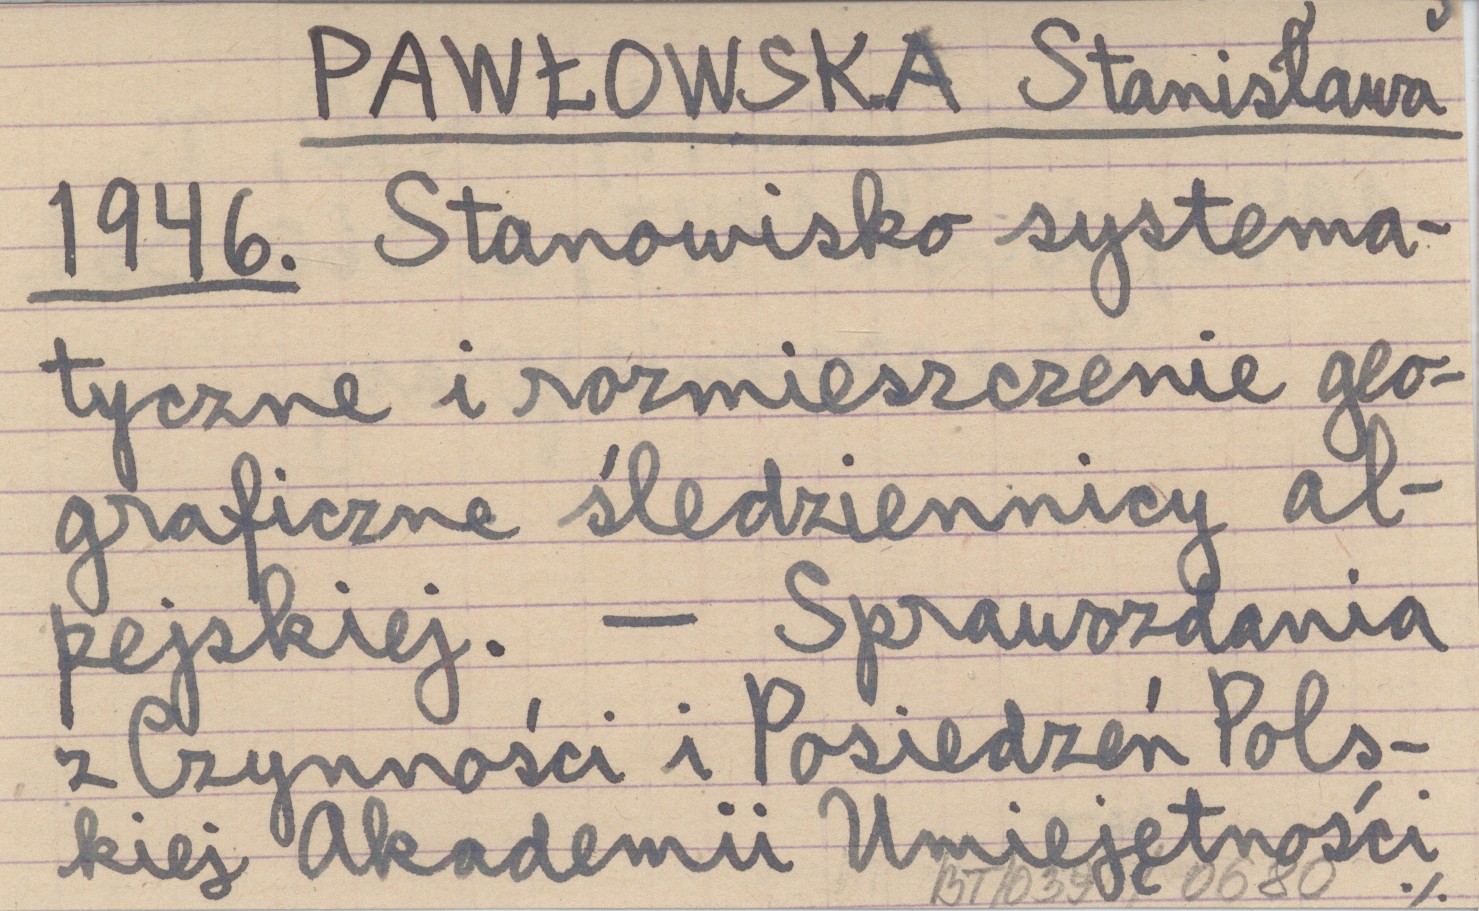 PAWŁOWSKA Stanisława
1946. Stanowisko systema-
tyczne i rozmieszczenie geo-
graficzne śledziennicy al-
pejskiej. — Sprawozdania
z Czynności i Posiedzeń Pols-
kiej Akademii Umiejętności
0680 ./.